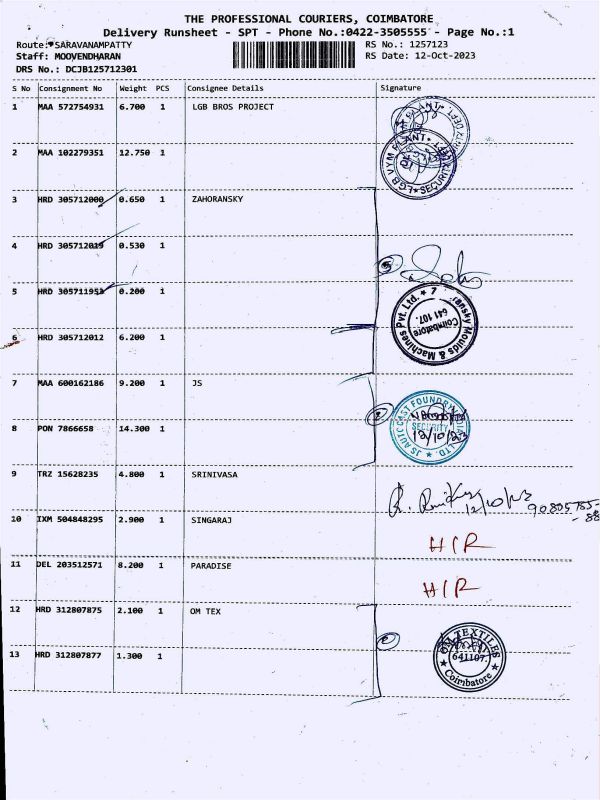 THE PROFESSIONAL COURIERS, COIMBATORE
Delivery Runsheet - SPT - Phone No.:0422-3505555 - Page No.:1
Route: SARAVANAMPATTY RS No.: 1257123
Staff: MOOVENDHARAN RS Date: 12-Oct-2023
DRS No.: DCJB125712301
S No Consignment No Weight PCS Consignee Details Signature
1 MAA 572754931 6.700 1 LGB BROS PROJECT
2 MAA 102279351 12.750 1
LGB VYM PLANT SECURITY
3 HRD 305712000 0.650 1 ZAHORANSKY
4 HRD 305712019 0.530 1
5 HRD 305711953 0.200 1
Moulds & Machines Pvt. Ltd. * 7
Coimbatore
641 107.
6 HRD 305712012 6.200 1
7 MAA 600162186 9.200 1 JS
JS AUTO CAST FOUNDRY INDIA LTD.
SECURITY
12/10/23
8 PON 7866658 14.300 1
9 TRZ 15628235 4.800 1 SRINIVASA
12/10/23
10 IXM 504848295 2.900 1 SINGARAJ
HIR
11 DEL 203512571 8.200 1 PARADISE
HIR
12 HRD 312807875 2.100 1 OM TEX
OM TEXTILES
641107.
Coimbatore
13 HRD 312807877 1.300 1